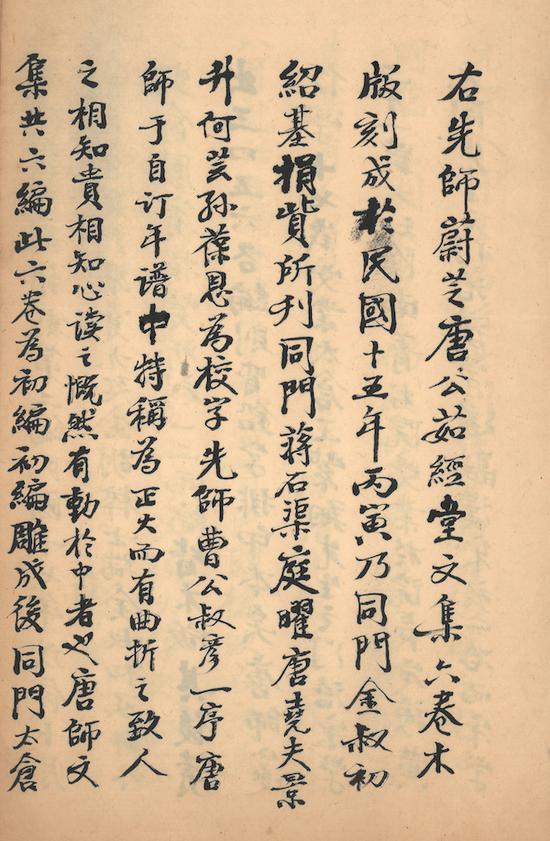 右先師蔚芝唐公茹經堂文集六卷木
版刻成於民國十五年丙寅乃同門金叔初
紹基捐貲所刊同門蔣石渠庭曜唐堯夫景
升何芸孫葆恩為校字先師曹公叔彦一序唐
師于自订年谱中特稱為正大而有曲折之致人
之相知貴相知心读之慨然有動於中者也唐師文
集共六編此六卷為初編初編雕成後同門太倉